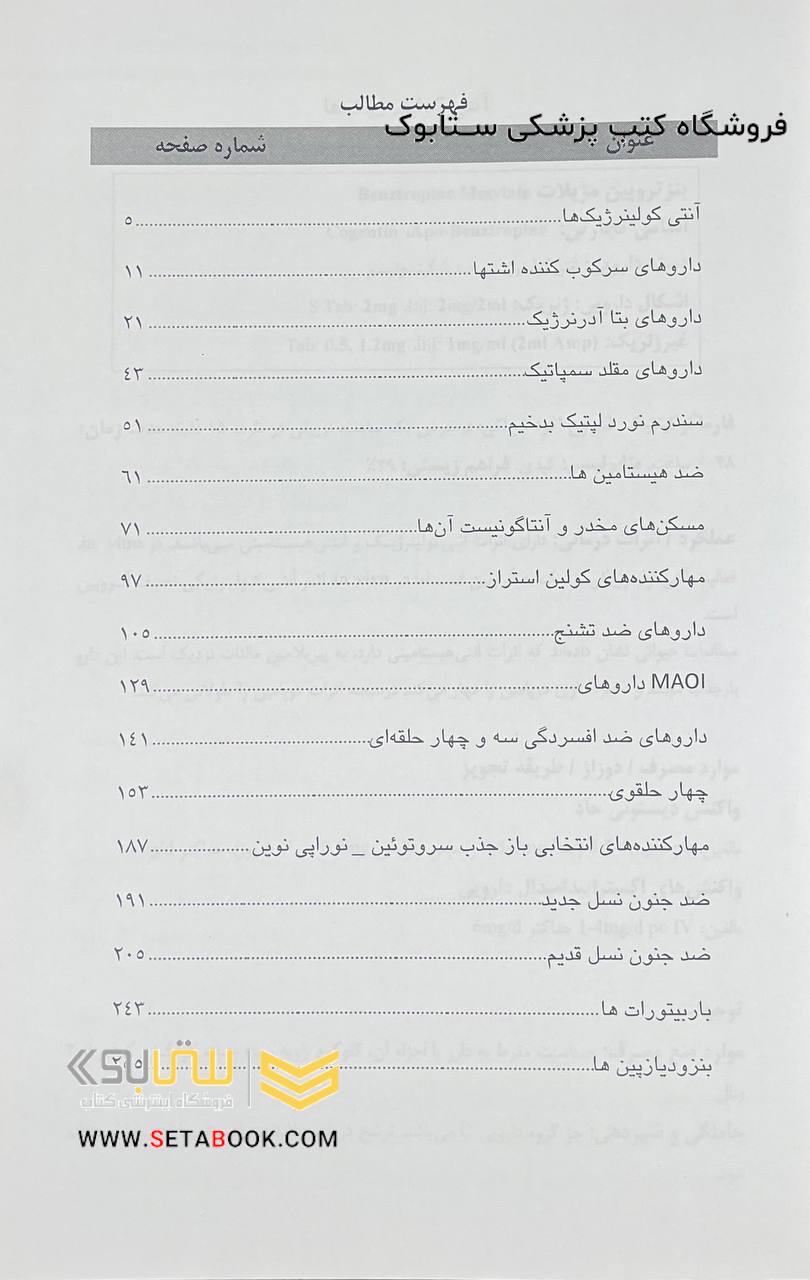 فهرست مطالب
فروشگاه کتب پزشکی ستابوک
عنوان شماره صفحه
آنتی کولینرژیک‌ها ۵
داروهای سرکوب کننده اشتها ۱۱
داروهای بتا آدرنرژیک ۲۱
داروهای مقلد سمپاتیک ۴۳
سندرم نورد لپتیک بدخیم ۵۱
ضد هیستامین ها ۶۱
مسکن‌های مخدر و آنتاگونیست آن‌ها ۷۱
مهارکننده‌های کولین استراز ۹۷
داروهای ضد تشنج ۱۰۵
داروهای MAOI ۱۲۹
داروهای ضد افسردگی سه و چهار حلقه‌ای ۱۴۱
چهار حلقوی ۱۵۳
مهارکننده‌های انتخابی باز جذب سروتوئین _ نوراپی نوین ۱۸۷
ضد جنون نسل جدید ۱۹۱
ضد جنون نسل قدیم ۲۰۵
باربیتورات ها ۲۴۳
بنزودیازپین ها
ستابوک
فروشگاه اینترنتی کتاب
WWW.SETABOOK.COM